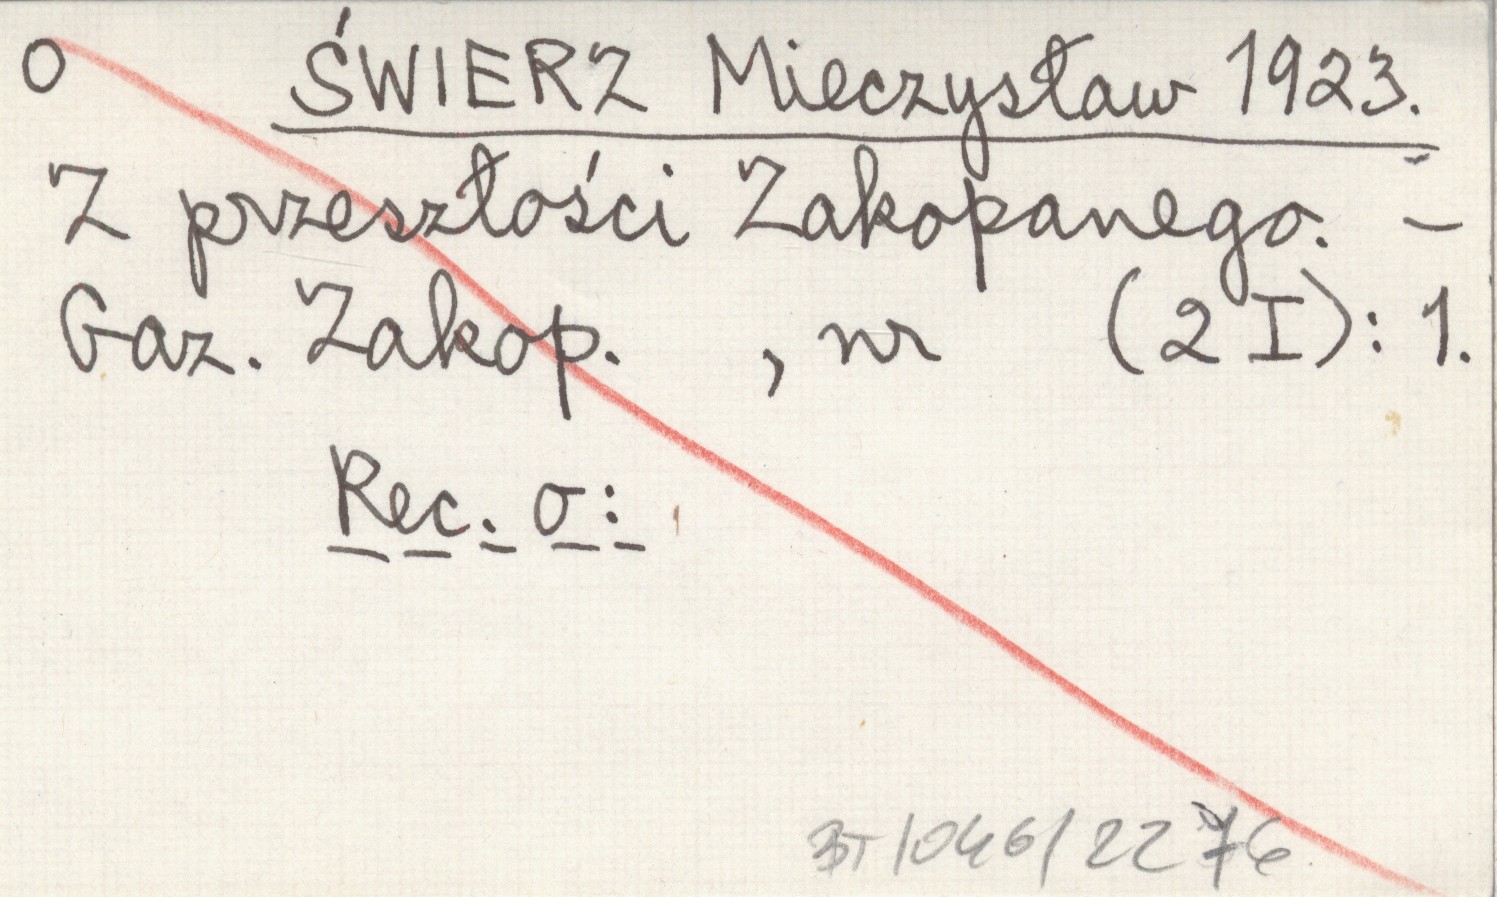 O ŚWIERZ Mieczysław 1923.
Z przeszłości Zakopanego. –
Gaz. Zakop. , nr (2 I): 1.
Rec. o:
BT/046/2276